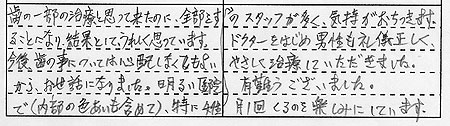 歯の一部の治療と思って来たのに、全部とす
ることになり、結果としてうれしく思っています。
今後、歯の事については心配しなくてもよい
から、お世話になりました。明るい医院
で(内部の色あいも含めて)、特に女性
のスタッフが多く、気持がおちつきます。
ドクターをはじめ男性も礼儀正しく、
やさしく治療していただきました。
有難うございました。
月1回くるのを楽しみにしています。